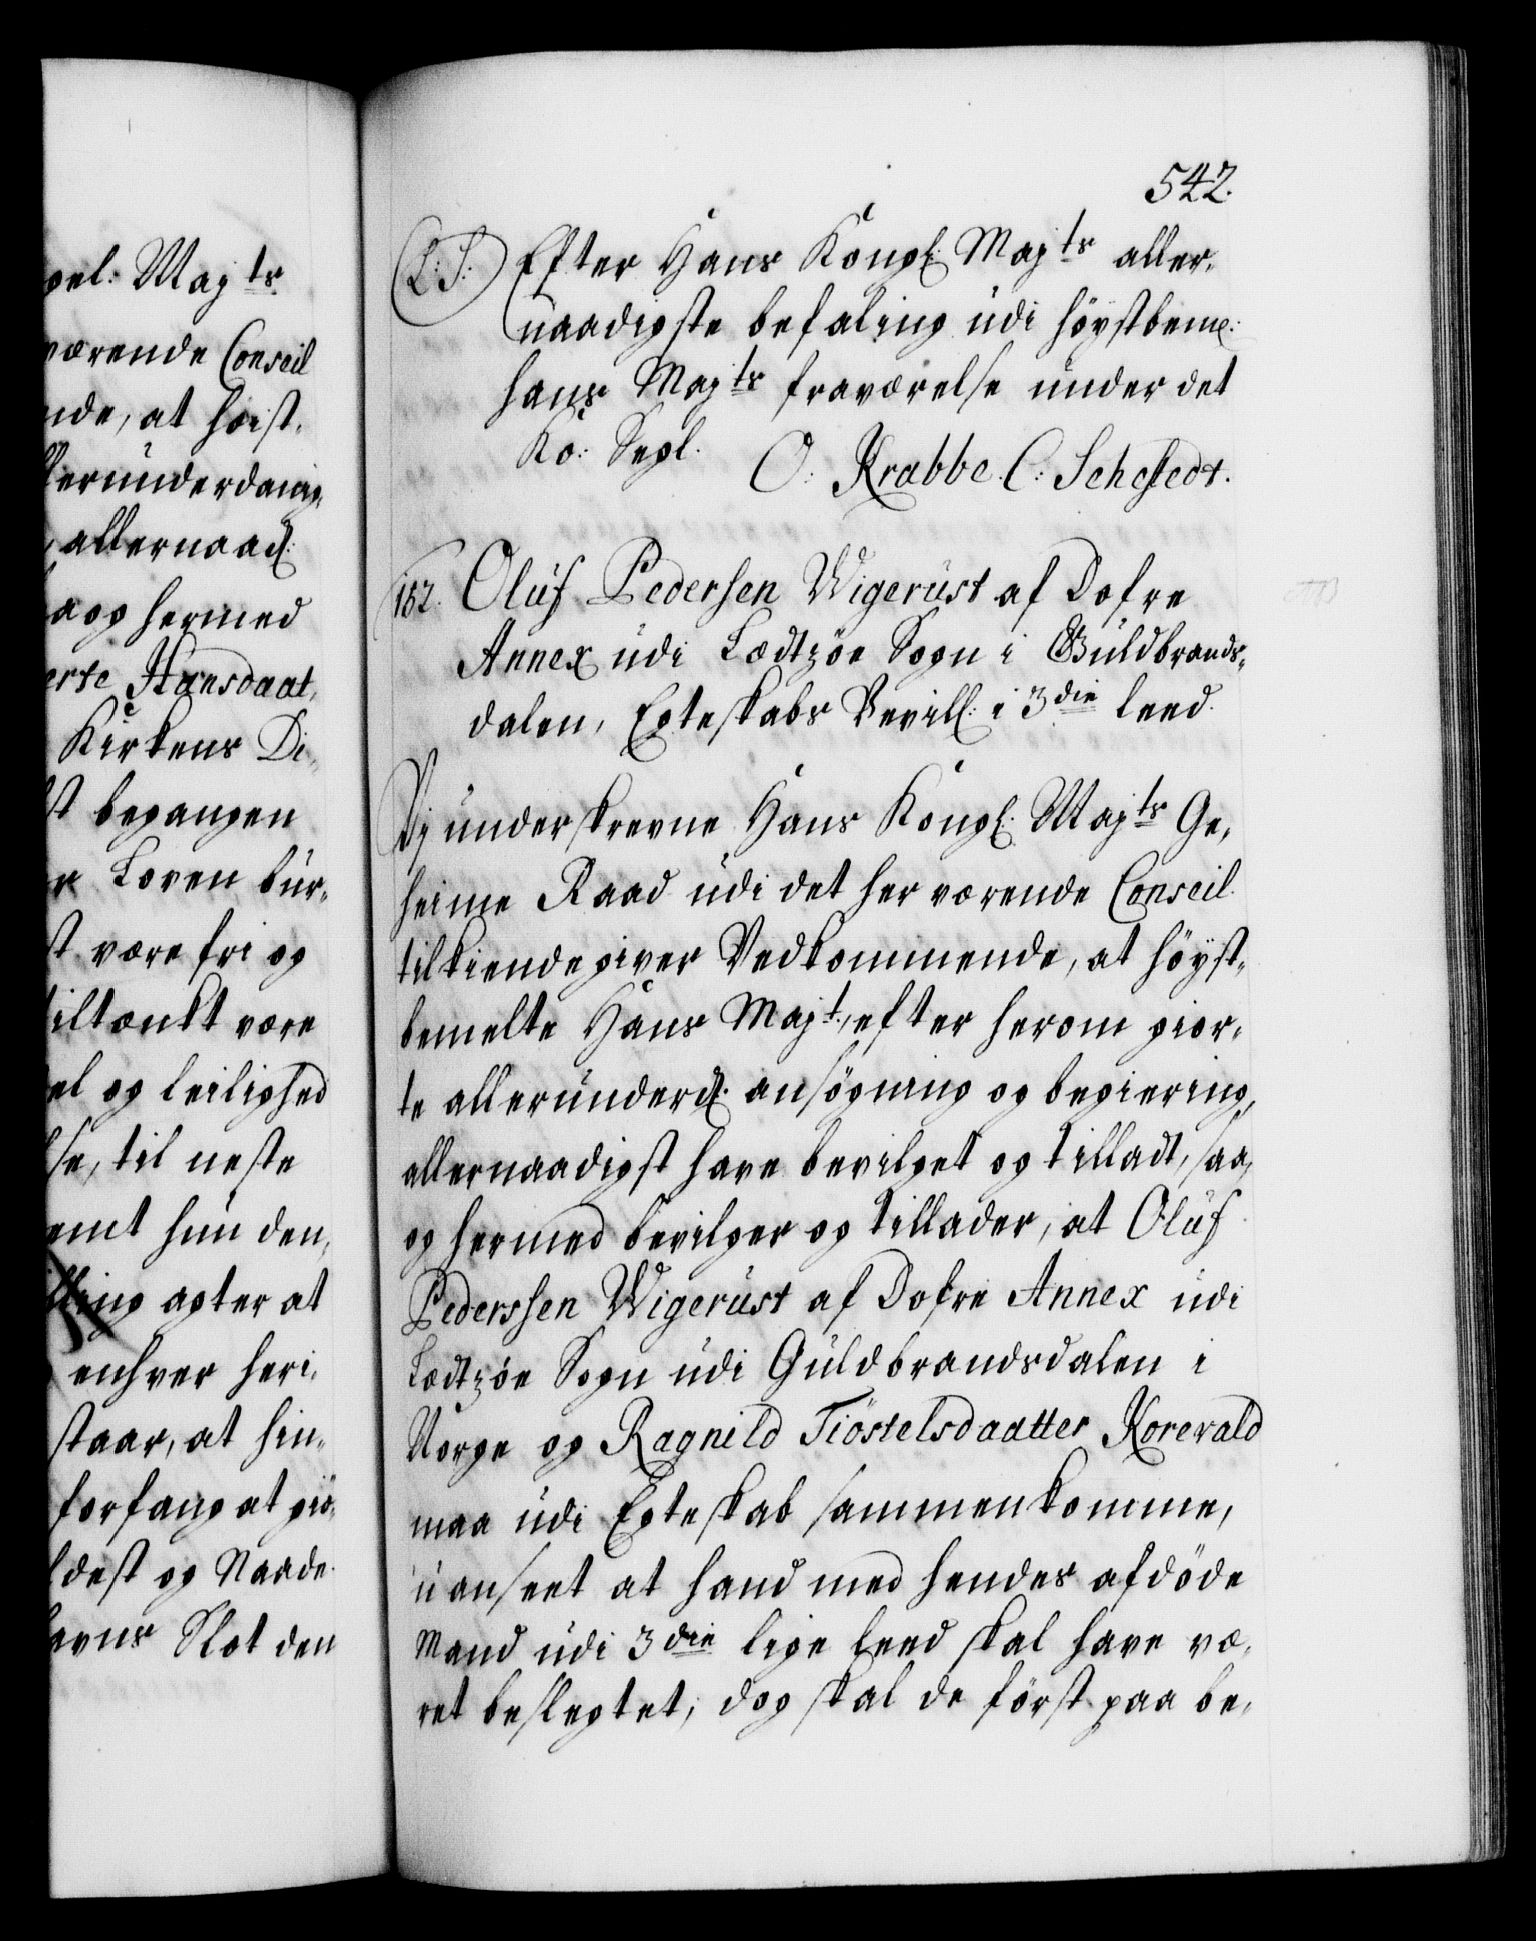 gel: Majts
værende Conseil
nde, at høist-
llerunderdanig-
allernaad:
saa og hermed
erte Hansdaat,
Kirkens Di-
st begangen
r Loven bur-
st være fri og
tiltænkt være
el og leilighed
lse, til neste
emt hun den,
lling agter at
enhver heri-
staar, at hin-
forfang at giö-
ldest og Naade.
avns Slot den
542.
L: S: Efter Hans Kongl: Majts aller-
naadigste befaling udi höystbemte:
hans Majts fraværelse under det
Ko: Segl. O: Krabbe. C: Sehestedt.
182. Oluf Pedersen Wigerust af Dofre
Annex udi Lædtzöe Sogn i Guldbrands-
dalen, Egteskabs Bevill: i 3die leed.
Vj underskrevne Hans Kongl: Majts Ge-
heime Raad udi det her værende Conseil
tilkiendegiver Vedkommende, at höyst-
bemelte Hans Majt:, efter herom gior-
te allerunderd: ansögning og begiering,
allernaadigst have bevilget og tilladt, saa
og hermed bevilger og tillader, at Oluf
Pederssen Wigerust af Dofre Annex udi
Lædtzöe Sogn udi Guldbrandsdalen i
Norge og Ragnild Tiöstelsdaatter Korevald
maa udi Egteskab sammenkomme,
uanseet at hand med hendes afdöde
Mand udi 3die lige leed skal have væ-
ret beslegtet; dog skal de först paa be-